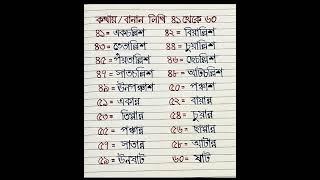 কথায় / বানান লিখি ৪১ থেকে ৬০
৪১ = একচল্লিশ ৪২ = বিয়াল্লিশ
৪৩ = তেতাল্লিশ ৪৪ = চুয়াল্লিশ
৪৫ = পঁয়তাল্লিশ ৪৬ = ছেচল্লিশ
৪৭ = সাতচল্লিশ ৪৮ = আটচল্লিশ
৪৯ = ঊনপঞ্চাশ ৫০ = পঞ্চাশ
৫১ = একান্ন ৫২ = বায়ান্ন
৫৩ = তিপ্পান্ন ৫৪ = চুয়ান্ন
৫৫ = পঞ্চান্ন ৫৬ = ছাপ্পান্ন
৫৭ = সাতান্ন ৫৮ = আটান্ন
৫৯ = ঊনষাট ৬০ = ষাট